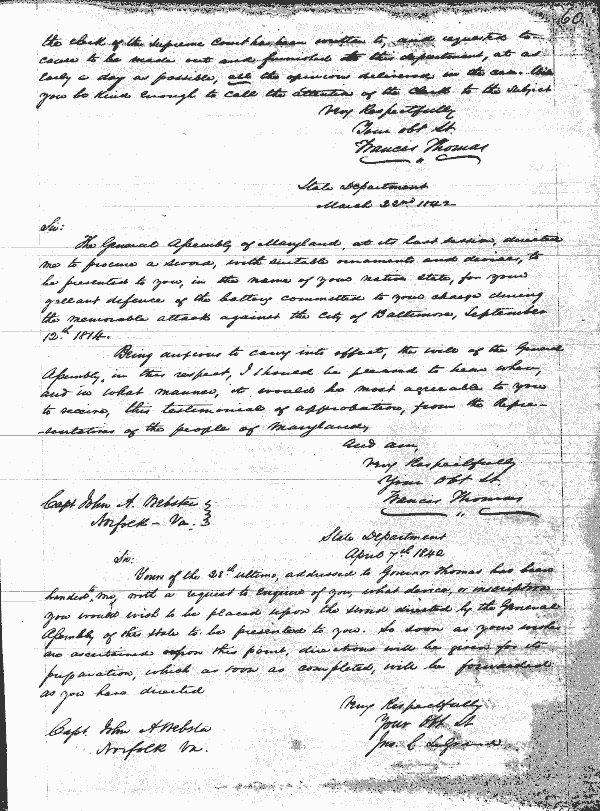 60
the clerk of the Supreme Court has been written to, and requested to
cause to be made out and furnished to this department, at as
early a day as possible, all the opinions delivered in the case. Will
you be kind enough to call the attention of the Clerk to the subject
Very Respectfully
Your obt St.
Francis Thomas
State Department
March 22nd 1842
Sir:
The General Assembly of Maryland, at its last session, directed
me to procure a sword, with suitable ornaments and devices, to
be presented to you, in the name of your native State, for your
gallant defence of the battery committed to your charge during
the memorable attack against the City of Baltimore, September
12th 1814.
Being anxious to carry into effect, the will of the General
Assembly, in this respect, I should be pleased to hear when,
and in what manner, it would be most agreeable to you
to receive, this testimonial of approbation, from the Repre-
-sentatives of the people of Maryland,
And am,
Very Respectfully
Your Obt St
Francis Thomas
Capt John A. Webster
Norfolk - Va.
State Department
April 7th 1842
Sir:
Yours of the 28th ultimo, addressed to Governor Thomas has been
handed me, with a request to enquire of you, what device, or inscription
you would wish to be placed upon the sword directed by the General
Assembly of this State to be presented to you. So soon as your wishes
are ascertained upon this point, directions will be given for its
preparation, which as soon as completed, will be forwarded
as you have directed
Very Respectfully
Your Obt St
Jno. C. LeGrand
Capt. John A Webster
Norfolk Va.